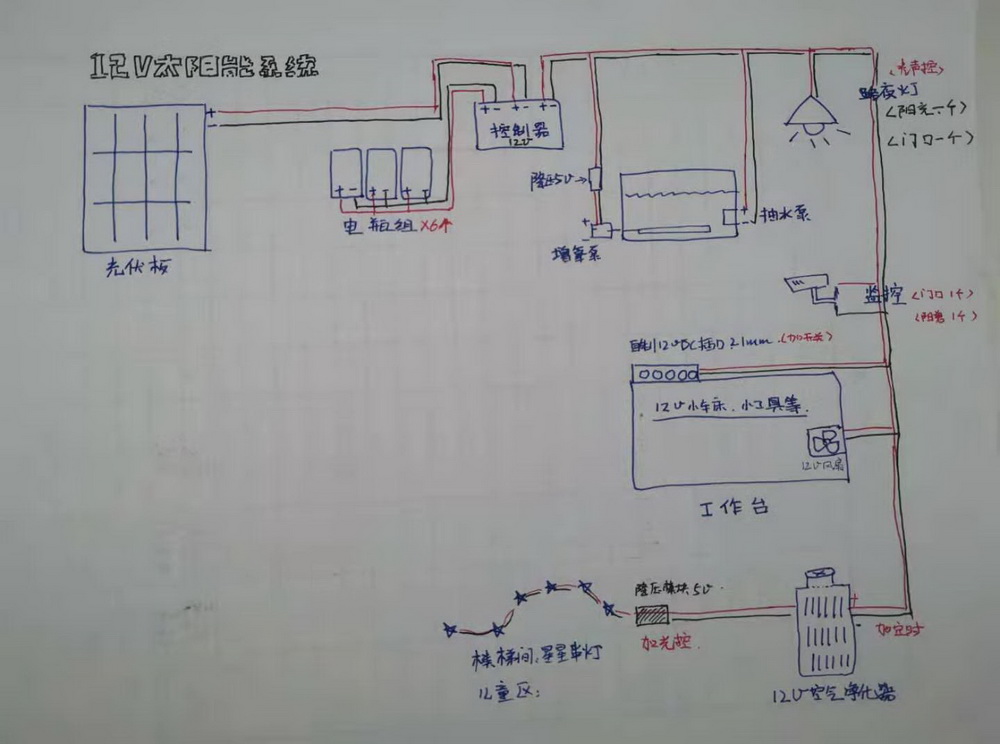 12V太阳能系统
+
-
光伏板
+ -
+ -
+ -
电瓶组 X6个
+ - + - + -
控制器
12V
降压5V→
+
-
增氧泵
+
-
抽水泵
(光声控)
照夜灯
(阳光一个)
(门口一个)
监控 (门口1个)
(阳光1个)
自制12VDC插口2.1mm (加开关)
12V小车床、小工具等
12V风扇
工作台
降压模块5V
加光控
楼梯间:星星串灯
儿童区:
+
-
加定时
12V空气净化器